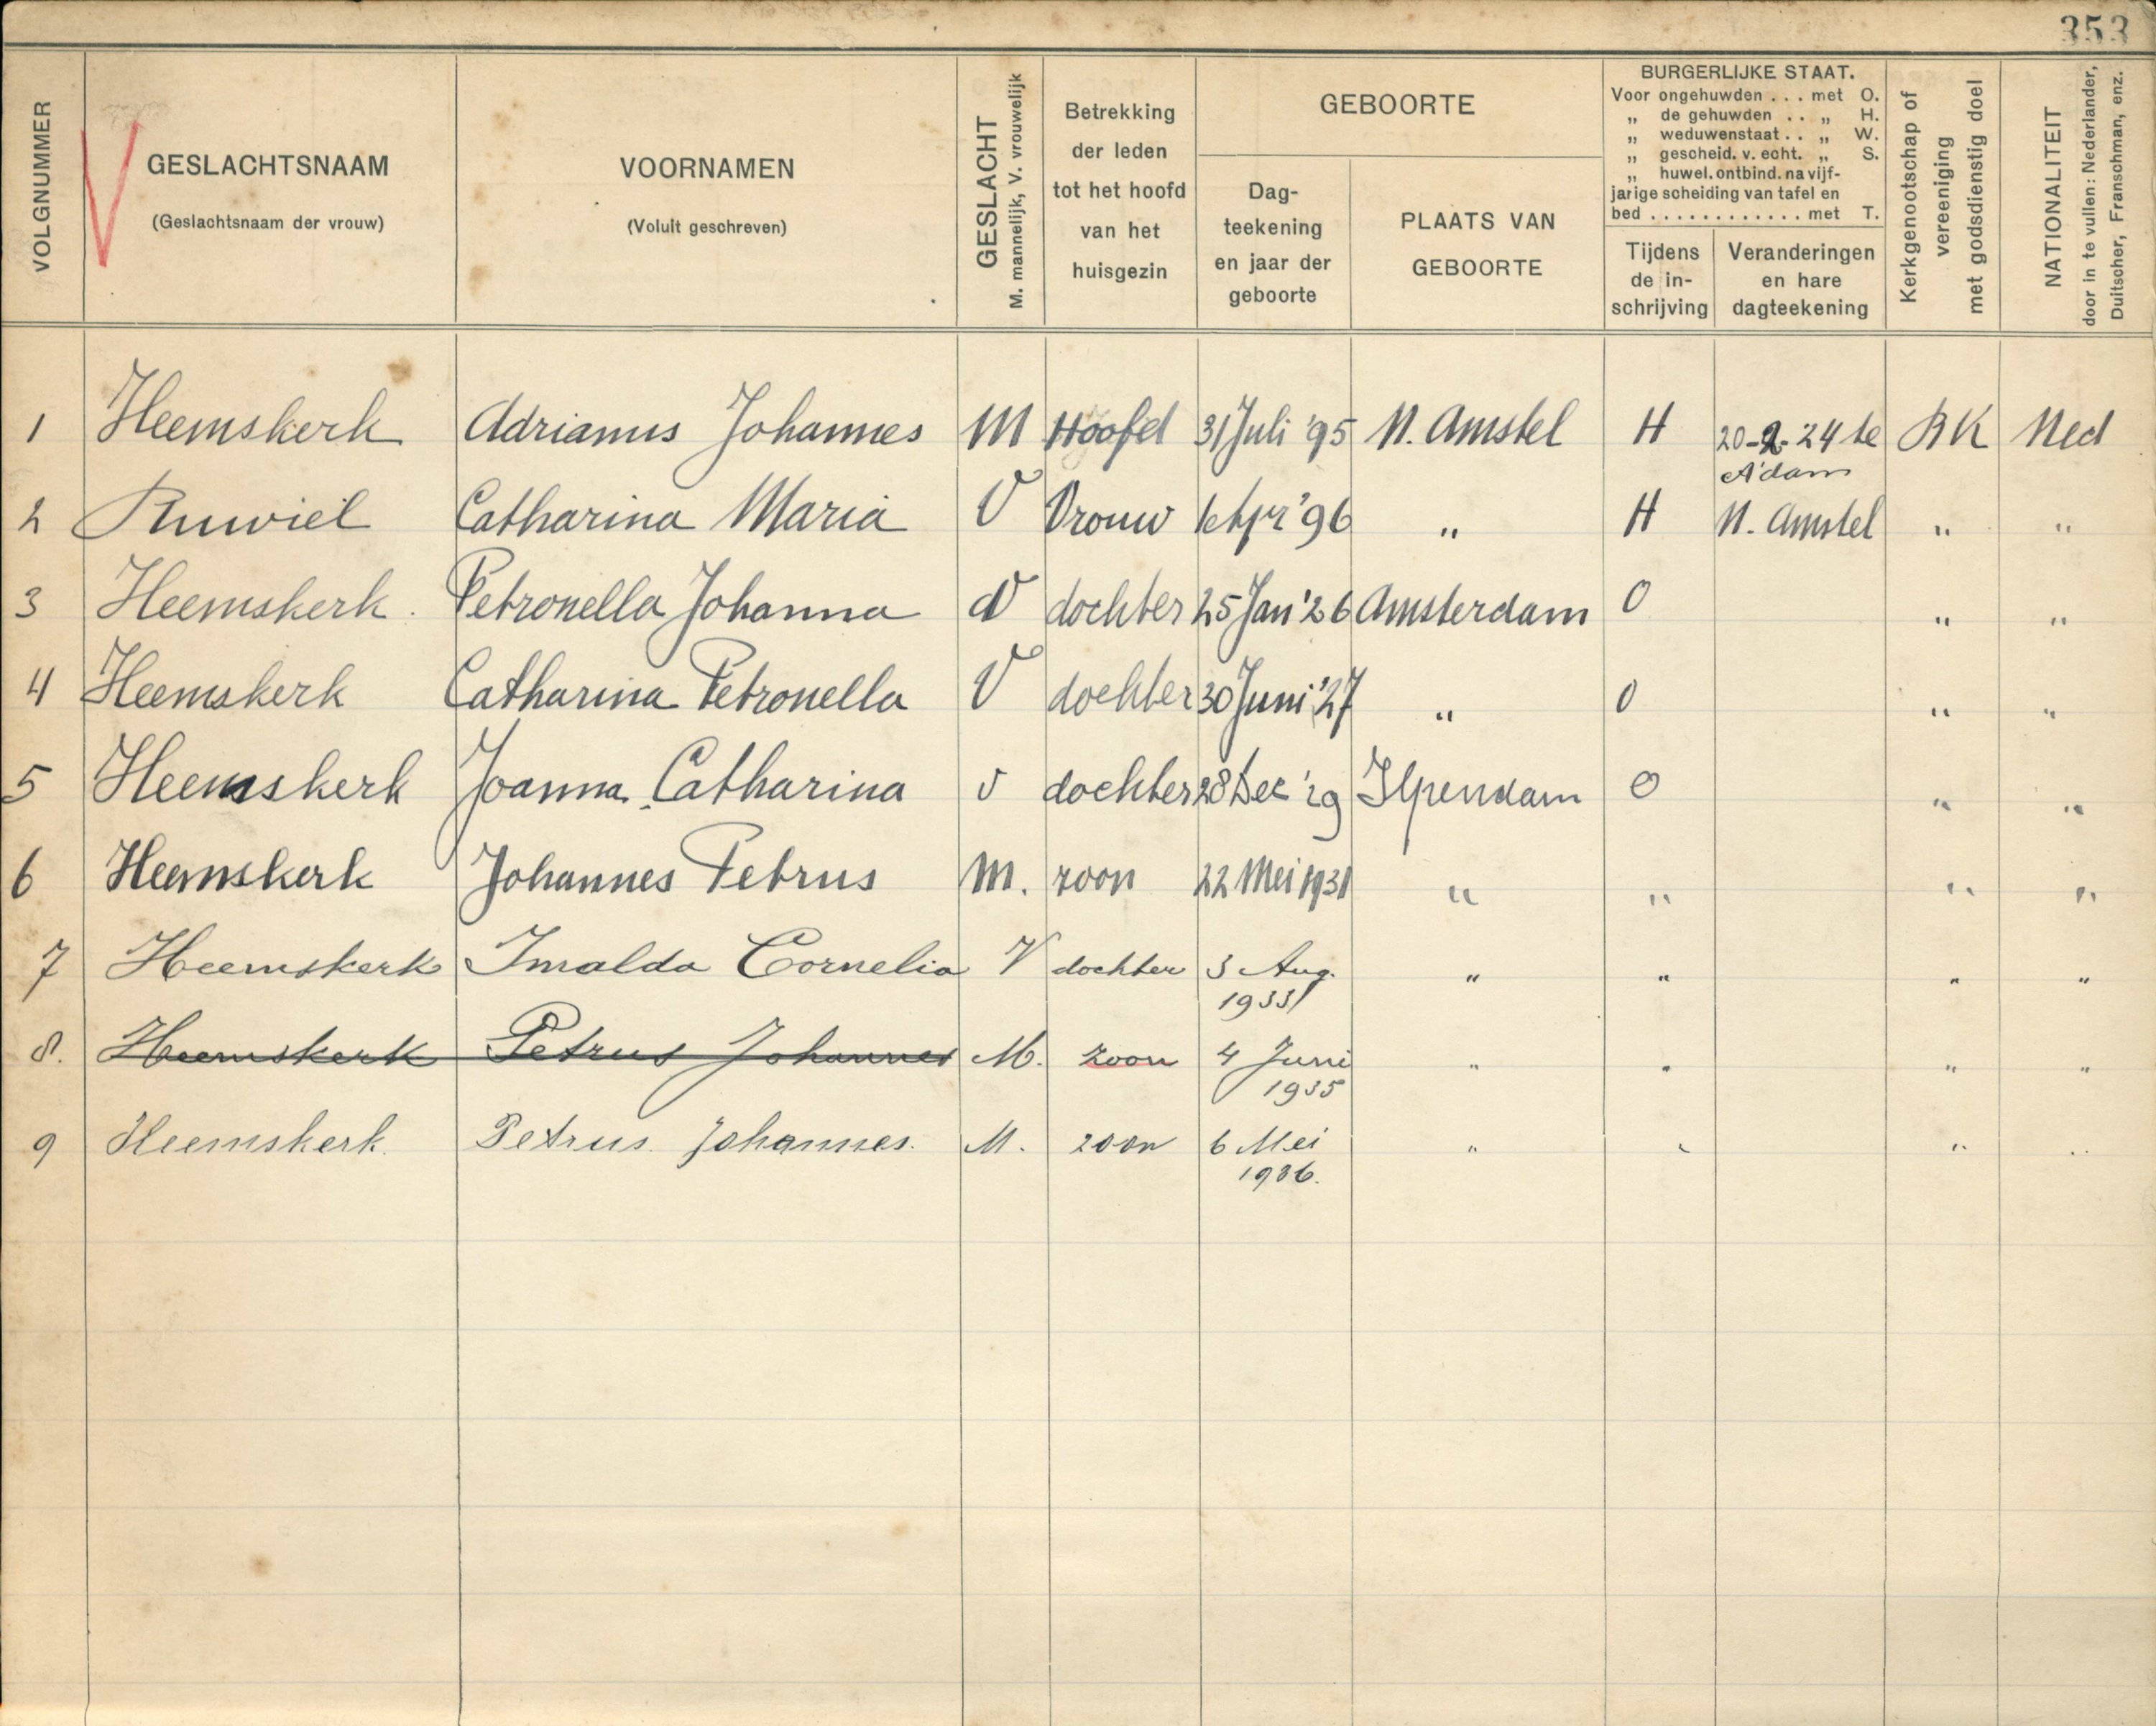 353
VOLGNUMMER
GESLACHTSNAAM
(Geslachtsnaam der vrouw)
VOORNAMEN
(Voluit geschreven)
GESLACHT
M. mannelijk, V. vrouwelijk
Betrekking
der leden
tot het hoofd
van het
huisgezin
GEBOORTE
Dag-
teekening
en jaar der
geboorte
PLAATS VAN
GEBOORTE
BURGERLIJKE STAAT.
Voor ongehuwden . . . met O.
„ de gehuwden . . „ H.
„ weduwenstaat . . „ W.
„ gescheid. v. echt. „ S.
„ huwel. ontbind. na vijf-
jarige scheiding van tafel en
bed . . . . . . . . . . . . met T.
Tijdens
de in-
schrijving
Veranderingen
en hare
dagteekening
Kerkgenootschap of
vereeniging
met godsdienstig doel
NATIONALITEIT
door in te vullen: Nederlander,
Duitscher, Franschman, enz.
1 Heemskerk Adrianus Johannes M Hoofd 31 Juli '95 N. Amstel H 20-2-'24 te RK Ned
A'dam
2 Ruwiel Catharina Maria V Vrouw Apr '96 „ H N. Amstel „ „
3 Heemskerk. Petronella Johanna V dochter 25 Jan '26 Amsterdam O „ „
4 Heemskerk Catharina Petronella V dochter 30 Juni '27 „ O „ „
5 Heemskerk Joanna Catharina v dochter 28 Dec '29 Ilpendam O „ „
6 Heemskerk Johannes Petrus M. zoon 22 Mei 1931 „ „ „ „
7 Heemskerk Imalda Cornelia V dochter 3 Aug. „ „ „ „
1933
8. Heemskerk Petrus Johannes M. zoon 4 Juni „ „ „ „
1935
9 Heemskerk. Petrus Johannes. M. zoon 6 Mei „ „ „ „
1936.